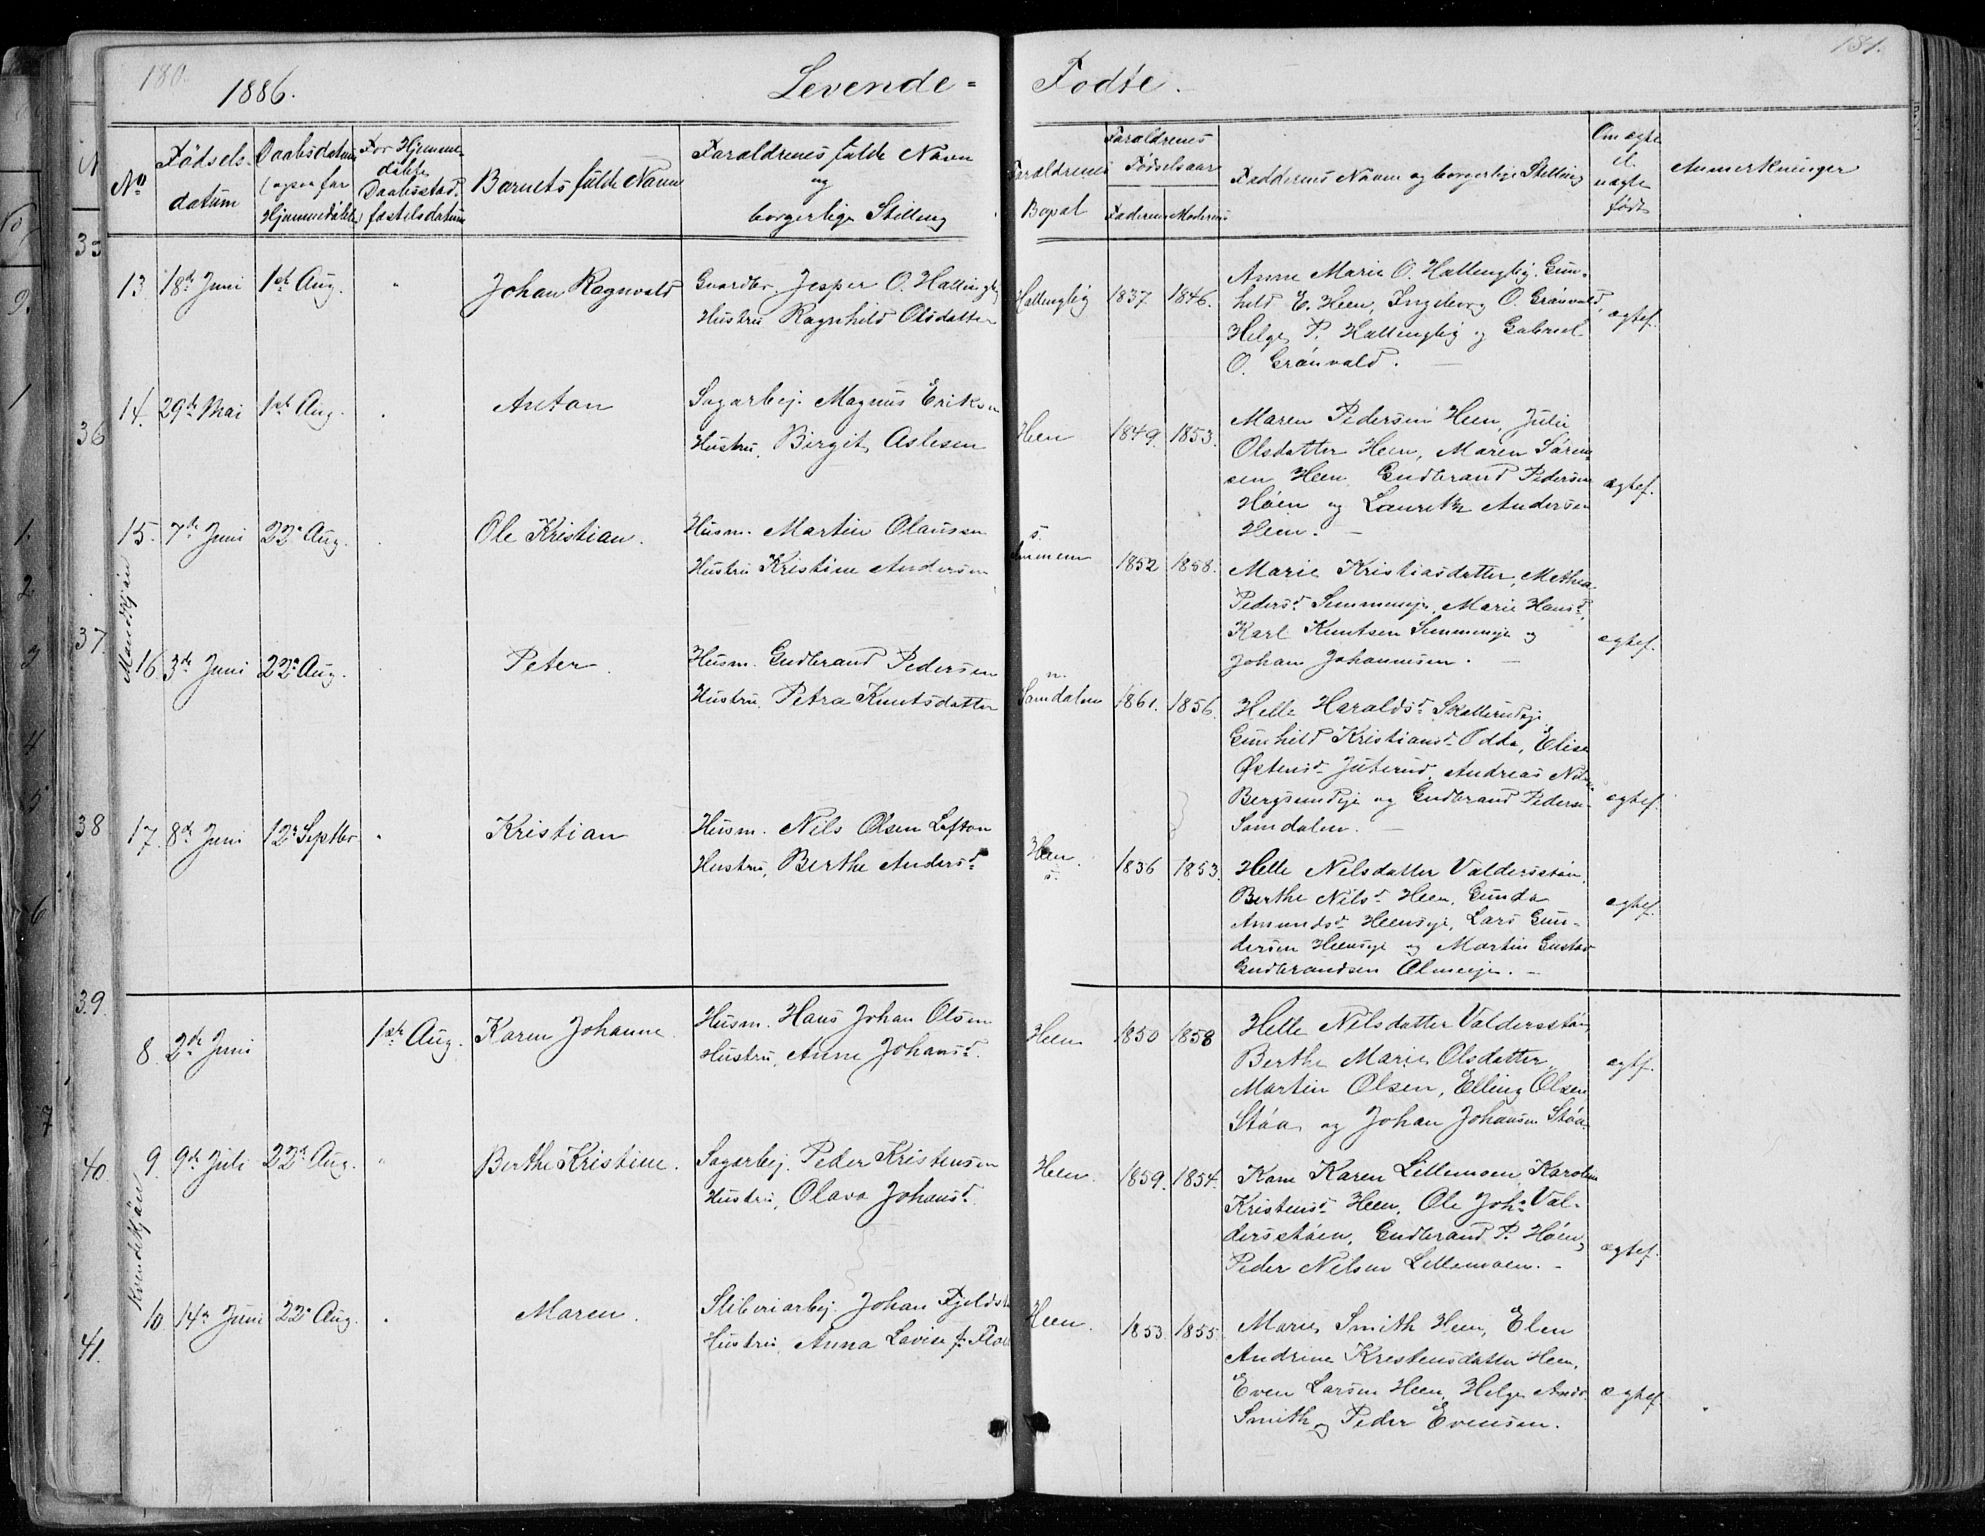 180.
181.
1886.
Levende = Fødte.
No
Fødsels-
datum
Daabsdatum
(ogsaa for
Hjemmedøbte)
For Hjemme-
døbte
Daabsstad-
fæstelsdatum
Barnets fulde Navn
Foræeldrenes fulde Navn
og
borgerlige Stilling
Forældrenes
Bopæl
Forældrenes
Fødselsaar
Faderens
Moderens
Faddernes Navn og borgerlige Stilling
Om ægte
el.
uægte
født
Anmerkninger
Mandkjön
13. 18de Juni 1ste Aug. " Johan Ragnvald
Gaardbr. Jesper O. Hallingby
Hustru Ragnhild Olsdatter
Hallingby 1837. 1846.
Anne Marie O. Hallingby. Gun-
hild E. Heen, Ingeborg O. Grönvold,
Helge P. Hallingby og Gabriel
O. Grönvald. —
ægtef.
14. 29de Mai 1ste Aug. Anton
Sagarbej. Magnus Eriksen
Hustru, Birgit Aslesen
Heen 1849. 1853.
Maren Pedersen Heen, Julie
Olsdatter Heen, Maren Sören-
sen Heen Gudbrand Pedersen
Höen og Lauritz Andersen
Heen. —
ægtef.
15. 7de Juni 22de Aug. Ole Kristian.
Husm. Martin Olausen
Hustru Kristine Andersen
s.
1852 1858.
Marie Kristiasdatter, Mathea
Pedersd. Semmeneje, Marie Hansd.
Karl Knutsen Semmeneje og
Johan Johannesen. —
ægtef.
16. 3de Juni 22de Aug. Peter.
Husm. Gudbrand Pedersen
Hustru, Petra Knutsdatter
n.
Samdalen 1861. 1856.
Helle Haraldsd. Skollerudeje
Gunhild Kristiansd. Odda, Elise
Østensd. Juterud, Andreas Nils
Bergsundeje og Gudbrand Peders.
Samdalen. —
ægtef.
17. 8de Juni 12te Septbr. " Kristian
Husm. Nils Olsen Lofton
Hustru, Berthe Andersd.
Heen.
s.
1836 1853.
Helle Nilsdatter Valdersstöen,
Berthe Nilsd. Heen, Gunda
Amundsd. Heenseje, Lars Gun-
dersen Heenseje og Martin Gustav
Gudbrandsen Almeeje. —
ægtef.
Kvindekjön
8. 2de Juni 1ste Aug. Karen Johanne.
Husm. Hans Johan Olsen
Hustru, Anne Johansd.
Heen 1850 1858
Helle Nilsdatter Valdersstöen
Berthe Marie Olsdatter,
Martin Olsen, Elling Olsen
Stöa og Johan Johansen Stöa
ægtf.
9. 9de Juli 22de Aug. " Berthe Kristine.
Sagarbej. Peder Kristensen
Hustru, Olava Johansd.
Heen. 1859. 1854.
Kone Karen Lillemoen, Karoline
Kristensd. Heen, Ole Joh. Val-
dersstöen, Gudbrand P. Höen,
Peder Nilsen Lillemoen. —
ægtef.
10. 14de Juni 22de Aug. Maren.
Sliberiarbej. Johan Fjelds
Hustru, Anna Lovise f.
Heen. 1853. 1855.
Marie Smith Heen, Elen
Andrine Kristensdatter Heen,
Even Larsen Heen, Helge Ands.
Smith og Peder Evensen.
ægtef.
35
36
37
38
39.
40
41.